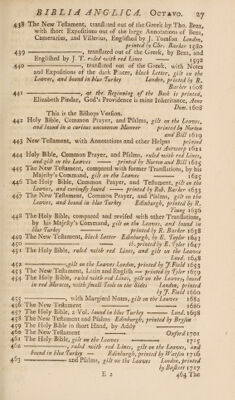 BIBLIA ANGLICA. OCTAVO. 27
438 The New Testament, translated out of the Greek by Tho. Beza,
with short Expositions out of the large Annotations of Beza,
Camerarius, and Villerius, Englished by J. Tomson London,
printed by Chr. Barker 1580
439 ———, translated out of the Greek, by Beza, and
Englished by J. T. ruled with red Lines — 1592
440 ——— translated out of the Greek, with Notes
and Expositions of the dark Places, black Letter, gilt on the
Leaves, and bound in blue Turkey London, printed by R.
Barker 1608
441 ———, at the Beginning of the Book is printed,
Elizabeth Pindar, God's Providence is mine Inheritance, Anno
Dom. 1608
This is the Bishops Version.
442 Holy Bible, Common Prayer, and Psalms, gilt on the Leaves,
and bound in a curious uncommon Manner printed by Norton
and Bill 1619
443 New Testament, with Annotations and other Helps printed
at Antwerp 1621
444 Holy Bible, Common Prayer, and Psalms, ruled with red Lines,
and gilt on the Leaves — printed by Norton and Bill 1625
445 The New Testament, compared with former Translations, by his
Majesty's Command, gilt on the Leaves — 1625
446 The Holy Bible, Common Prayer, and Testament, gilt on the
Leaves, and curiously bound — printed by Rob. Barker 1633
447 The New Testament, Common Prayer, and Psalms, gilt on the
Leaves, and bound in blue Turkey Edinburgh, printed by R.
1636
448 The Holy Bible, compared and revised with other Translations,
by his Majesty's Command, gilt on the Leaves, and bound in
blue Turkey — printed by R. Barker 1638
449 The New Testament, black Letter Edinburgh, by E. Tyler 1643
450 — ib. printed by E. Tyler 1647
451 The Holy Bible, ruled with red Lines, and gilt on the Leaves
Lond. 1648
452 ———, gilt on the Leaves London, printed by J. Field 1653
453 The New Testament, Latin and English — printed by Tyler 1659
454 The Holy Bible, ruled with red Lines, gilt on the Leaves, bound
in red Morocco, with small Tools on the Sides London, printed
by J. Field 1660
455 ———, with Marginal Notes, gilt on the Leaves 1682
456 The New Testament — 1686
457 The Holy Bible, 2 Vol. bound in blue Turkey — Lond. 1698
458 The New Testament and Psalms Edinburgh, printed by
459 The Holy Bible in short Hand, by Addy
460 The New Testament — Oxford 1701
461 The Holy Bible, gilt on the Leaves — 1715
462 ———, ruled with red Lines, gilt on the Leaves, and
bound in blue Turkey — Edinburgh, printed by Watson 1716
463 ——— and Psalms, gilt on the Leaves London, printed
by Baskett 1717
E 2 464 The